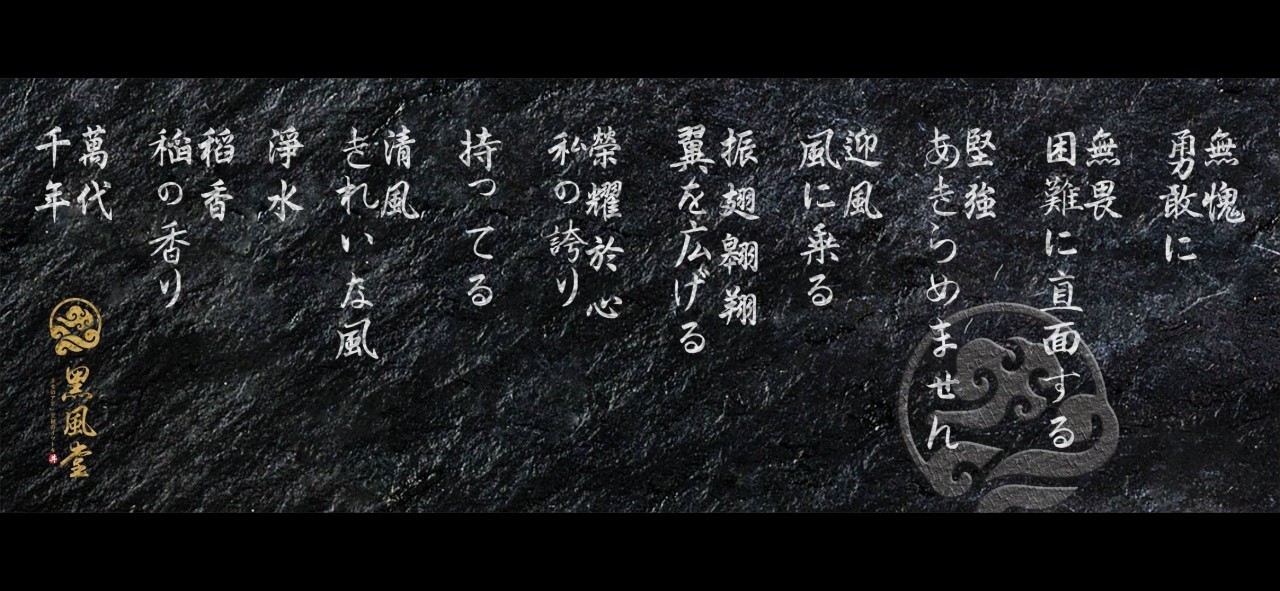 無愧
勇敢に
無畏
困難に直面する
堅強
あきらめません
迎風
風に乗る
振翅翱翔
翼を広げる
榮耀於心
私の誇り
持ってる
清風
きれいな風
淨水
稻香
稲の香り
萬代
千年
黑風堂